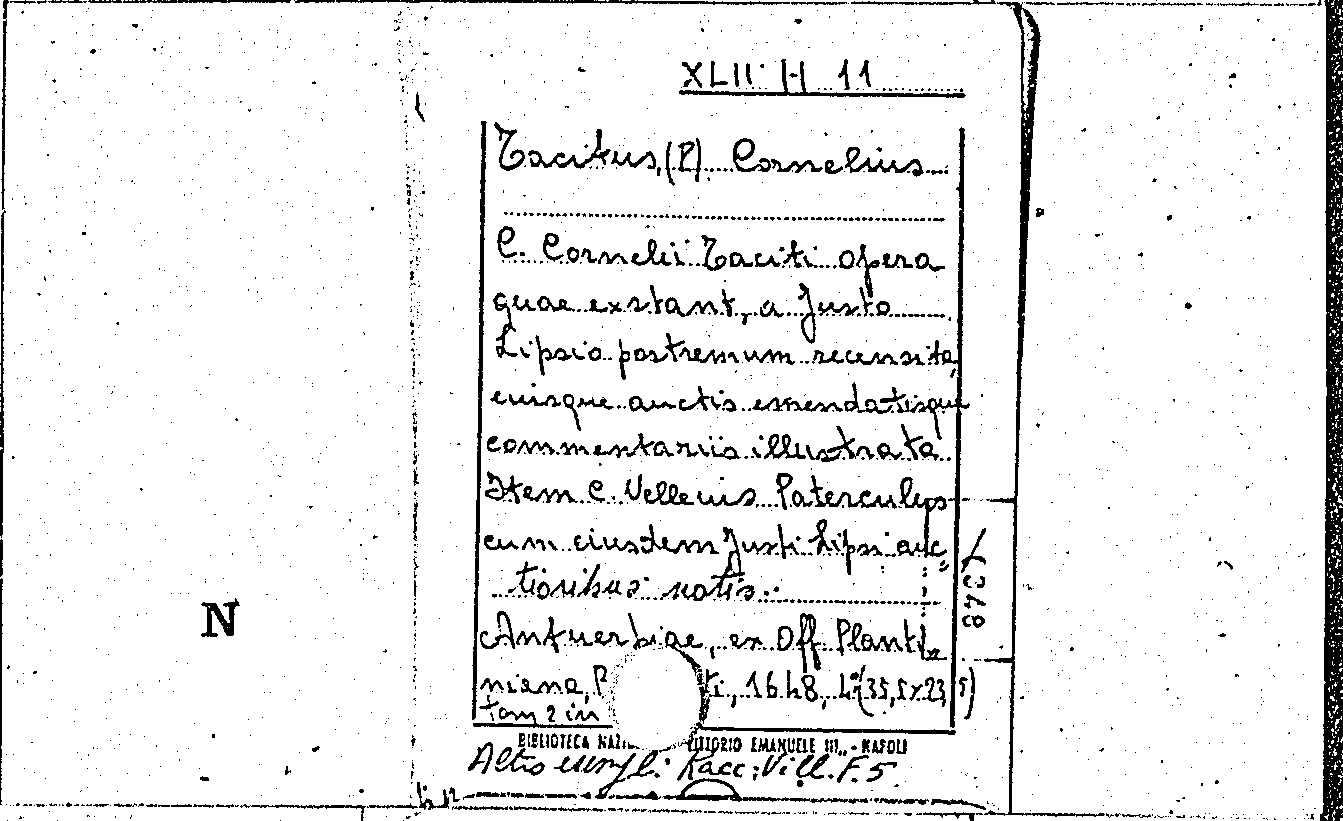 XLII H 11
Tacitus, (P) Cornelius
C. Cornelii Taciti opera
quae exstant, a Justo
Lipsio postremum recensita,
eiusque auctis emendatisque
commentariis illustrata
Item C. Velleius Paterculus
cum eiusdem Justi Lipsi auc=
tioribus notis.
Antuerbiae, ex Off Planti=
niana, 1648, (35,5x23,5)
Tom 2 in
BIBLIOTECA VITTORIO EMANUELE III - NAPOLI
Racc: Vill. F. 5
N